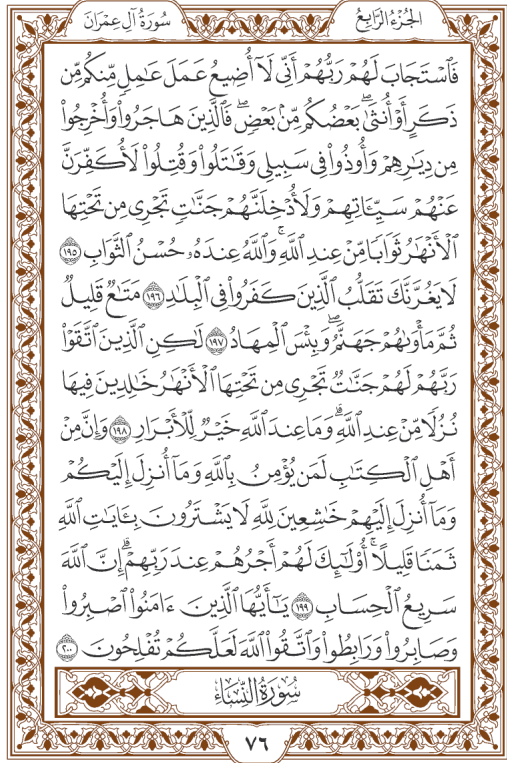 الجُزْءُ الرَّابِعُ
سُورَةُ آلِ عِمْرَانَ
فَٱسْتَجَابَ لَهُمْ رَبُّهُمْ أَنِّي لَآ أُضِيعُ عَمَلَ عَٰمِلٍ مِّنكُم مِّن
ذَكَرٍ أَوْ أُنثَىٰۖ بَعْضُكُم مِّنۢ بَعْضٖۖ فَٱلَّذِينَ هَاجَرُواْ وَأُخْرِجُواْ
مِن دِيَٰرِهِمْ وَأُوذُواْ فِي سَبِيلِي وَقَٰتَلُواْ وَقُتِلُواْ لَأُكَفِّرَنَّ
عَنْهُمْ سَيِّـَٔاتِهِمْ وَلَأُدْخِلَنَّهُمْ جَنَّٰتٖ تَجْرِي مِن تَحْتِهَا
ٱلْأَنْهَٰرُ ثَوَابٗا مِّنْ عِندِ ٱللَّهِۚ وَٱللَّهُ عِندَهُۥ حُسْنُ ٱلثَّوَابِ ١٩٥
لَا يَغُرَّنَّكَ تَقَلُّبُ ٱلَّذِينَ كَفَرُواْ فِي ٱلْبِلَٰدِ ١٩٦ مَتَٰعٞ قَلِيلٞ
ثُمَّ مَأْوَىٰهُمْ جَهَنَّمُۖ وَبِئْسَ ٱلْمِهَادُ ١٩٧ لَٰكِنِ ٱلَّذِينَ ٱتَّقَوْاْ
رَبَّهُمْ لَهُمْ جَنَّٰتٞ تَجْرِي مِن تَحْتِهَا ٱلْأَنْهَٰرُ خَٰلِدِينَ فِيهَا
نُزُلٗا مِّنْ عِندِ ٱللَّهِۗ وَمَا عِندَ ٱللَّهِ خَيْرٞ لِّلْأَبْرَارِ ١٩٨ وَإِنَّ مِنْ
أَهْلِ ٱلْكِتَٰبِ لَمَن يُؤْمِنُ بِٱللَّهِ وَمَآ أُنزِلَ إِلَيْكُمْ
وَمَآ أُنزِلَ إِلَيْهِمْ خَٰشِعِينَ لِلَّهِ لَا يَشْتَرُونَ بِـَٔايَٰتِ ٱللَّهِ
ثَمَنٗا قَلِيلًاۚ أُوْلَٰٓئِكَ لَهُمْ أَجْرُهُمْ عِندَ رَبِّهِمْۗ إِنَّ ٱللَّهَ
سَرِيعُ ٱلْحِسَابِ ١٩٩ يَٰٓأَيُّهَا ٱلَّذِينَ ءَامَنُواْ ٱصْبِرُواْ
وَصَابِرُواْ وَرَابِطُواْ وَٱتَّقُواْ ٱللَّهَ لَعَلَّكُمْ تُفْلِحُونَ ٢٠٠
سُورَةُ النِّسَاءِ
٧٦